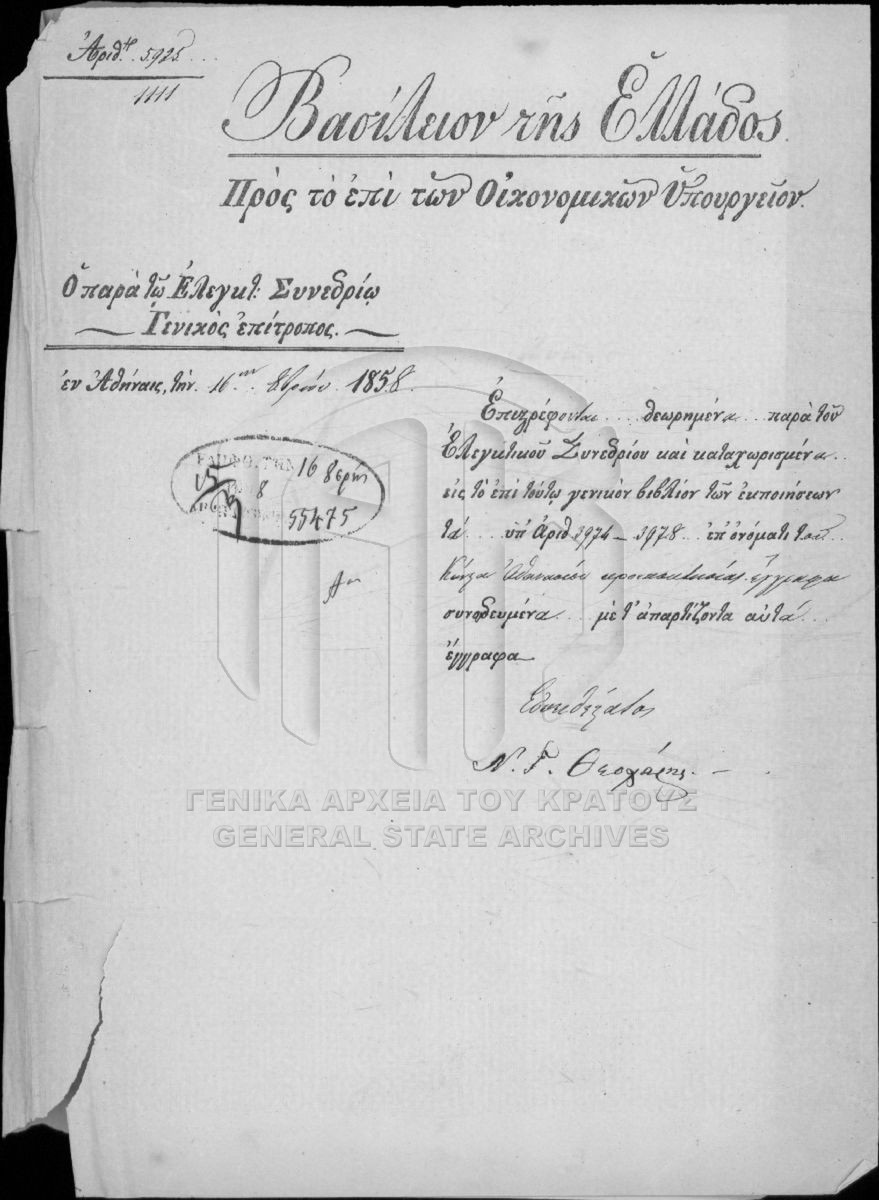 Ἀριθ. 5925
1111
Βασίλειον τῆς Ἑλλάδος.
Πρὸς τὸ ἐπὶ τῶν Οἰκονομικῶν Ὑπουργεῖον.
Ὁ παρὰ τῷ Ἐλεγκτ: Συνεδρίῳ
Γενικὸς ἐπίτροπος.
ἐν Ἀθήναις, τὴν 16 8βρίου 1858.
Ἐπιστρέφονται θεωρημένα παρὰ τοῦ
Ἐλεγκτικοῦ Συνεδρίου καὶ καταχωρισμένα
εἰς τὸ ἐπὶ τούτῳ γενικὸν βιβλίον τῶν ἐκποιήσεων
τὰ ὑπ' Ἀριθ 3974 – 3978 ἐπ' ὀνόματι τοῦ
Ἀθανασίου ἔγγραφα
συνοδευμένα μὲ τ' ἀπαρτίζοντα αὐτὰ
ἔγγραφα
Εὐπειθέστατος
Ν. Γ. Θεοχάρης
16 8βρίου
15
8
55475
ΓΕΝΙΚΑ ΑΡΧΕΙΑ ΤΟΥ ΚΡΑΤΟΥΣ
GENERAL STATE ARCHIVES